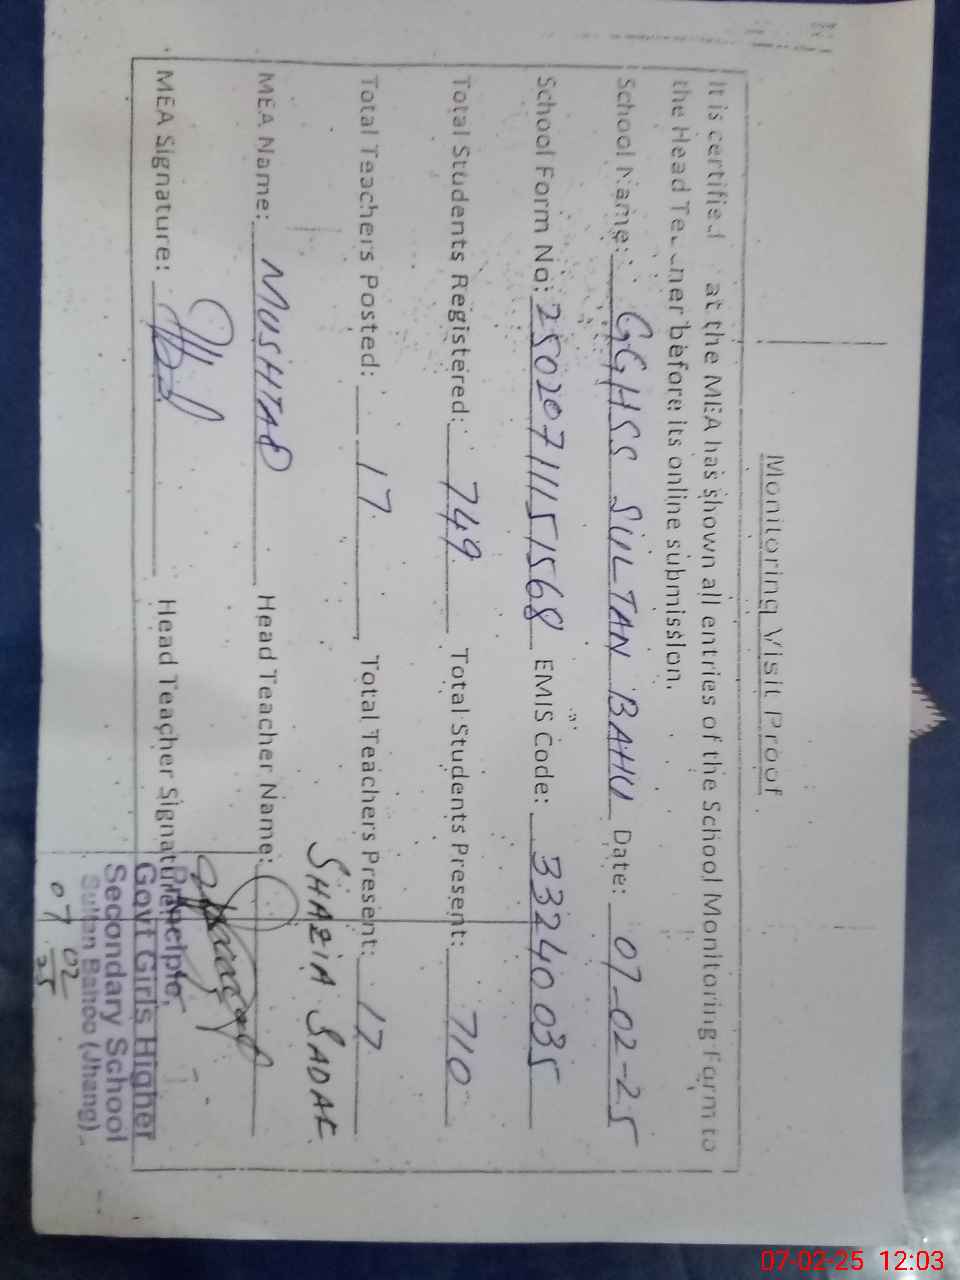 Monitoring Visit Proof
It is certified at the MEA has shown all entries of the School Monitoring Form to
the Head Teacher before its online submission.
School Name: GGHSS SULTAN BAHU Date: 07-02-25
School Form No: 25020711151568 EMIS Code: 33240035
Total Students Registered: 749 Total Students Present: 710
Total Teachers Posted: 17 Total Teachers Present: 17
SHAZIA SADAF
MEA Name: MUSHTAQ Head Teacher Name:
MEA Signature: Head Teacher Signature:
Principle,
Govt Girls Higher
Secondary School
Sultan Bahoo (Jhang)
07 02 25
07-02-25 12:03